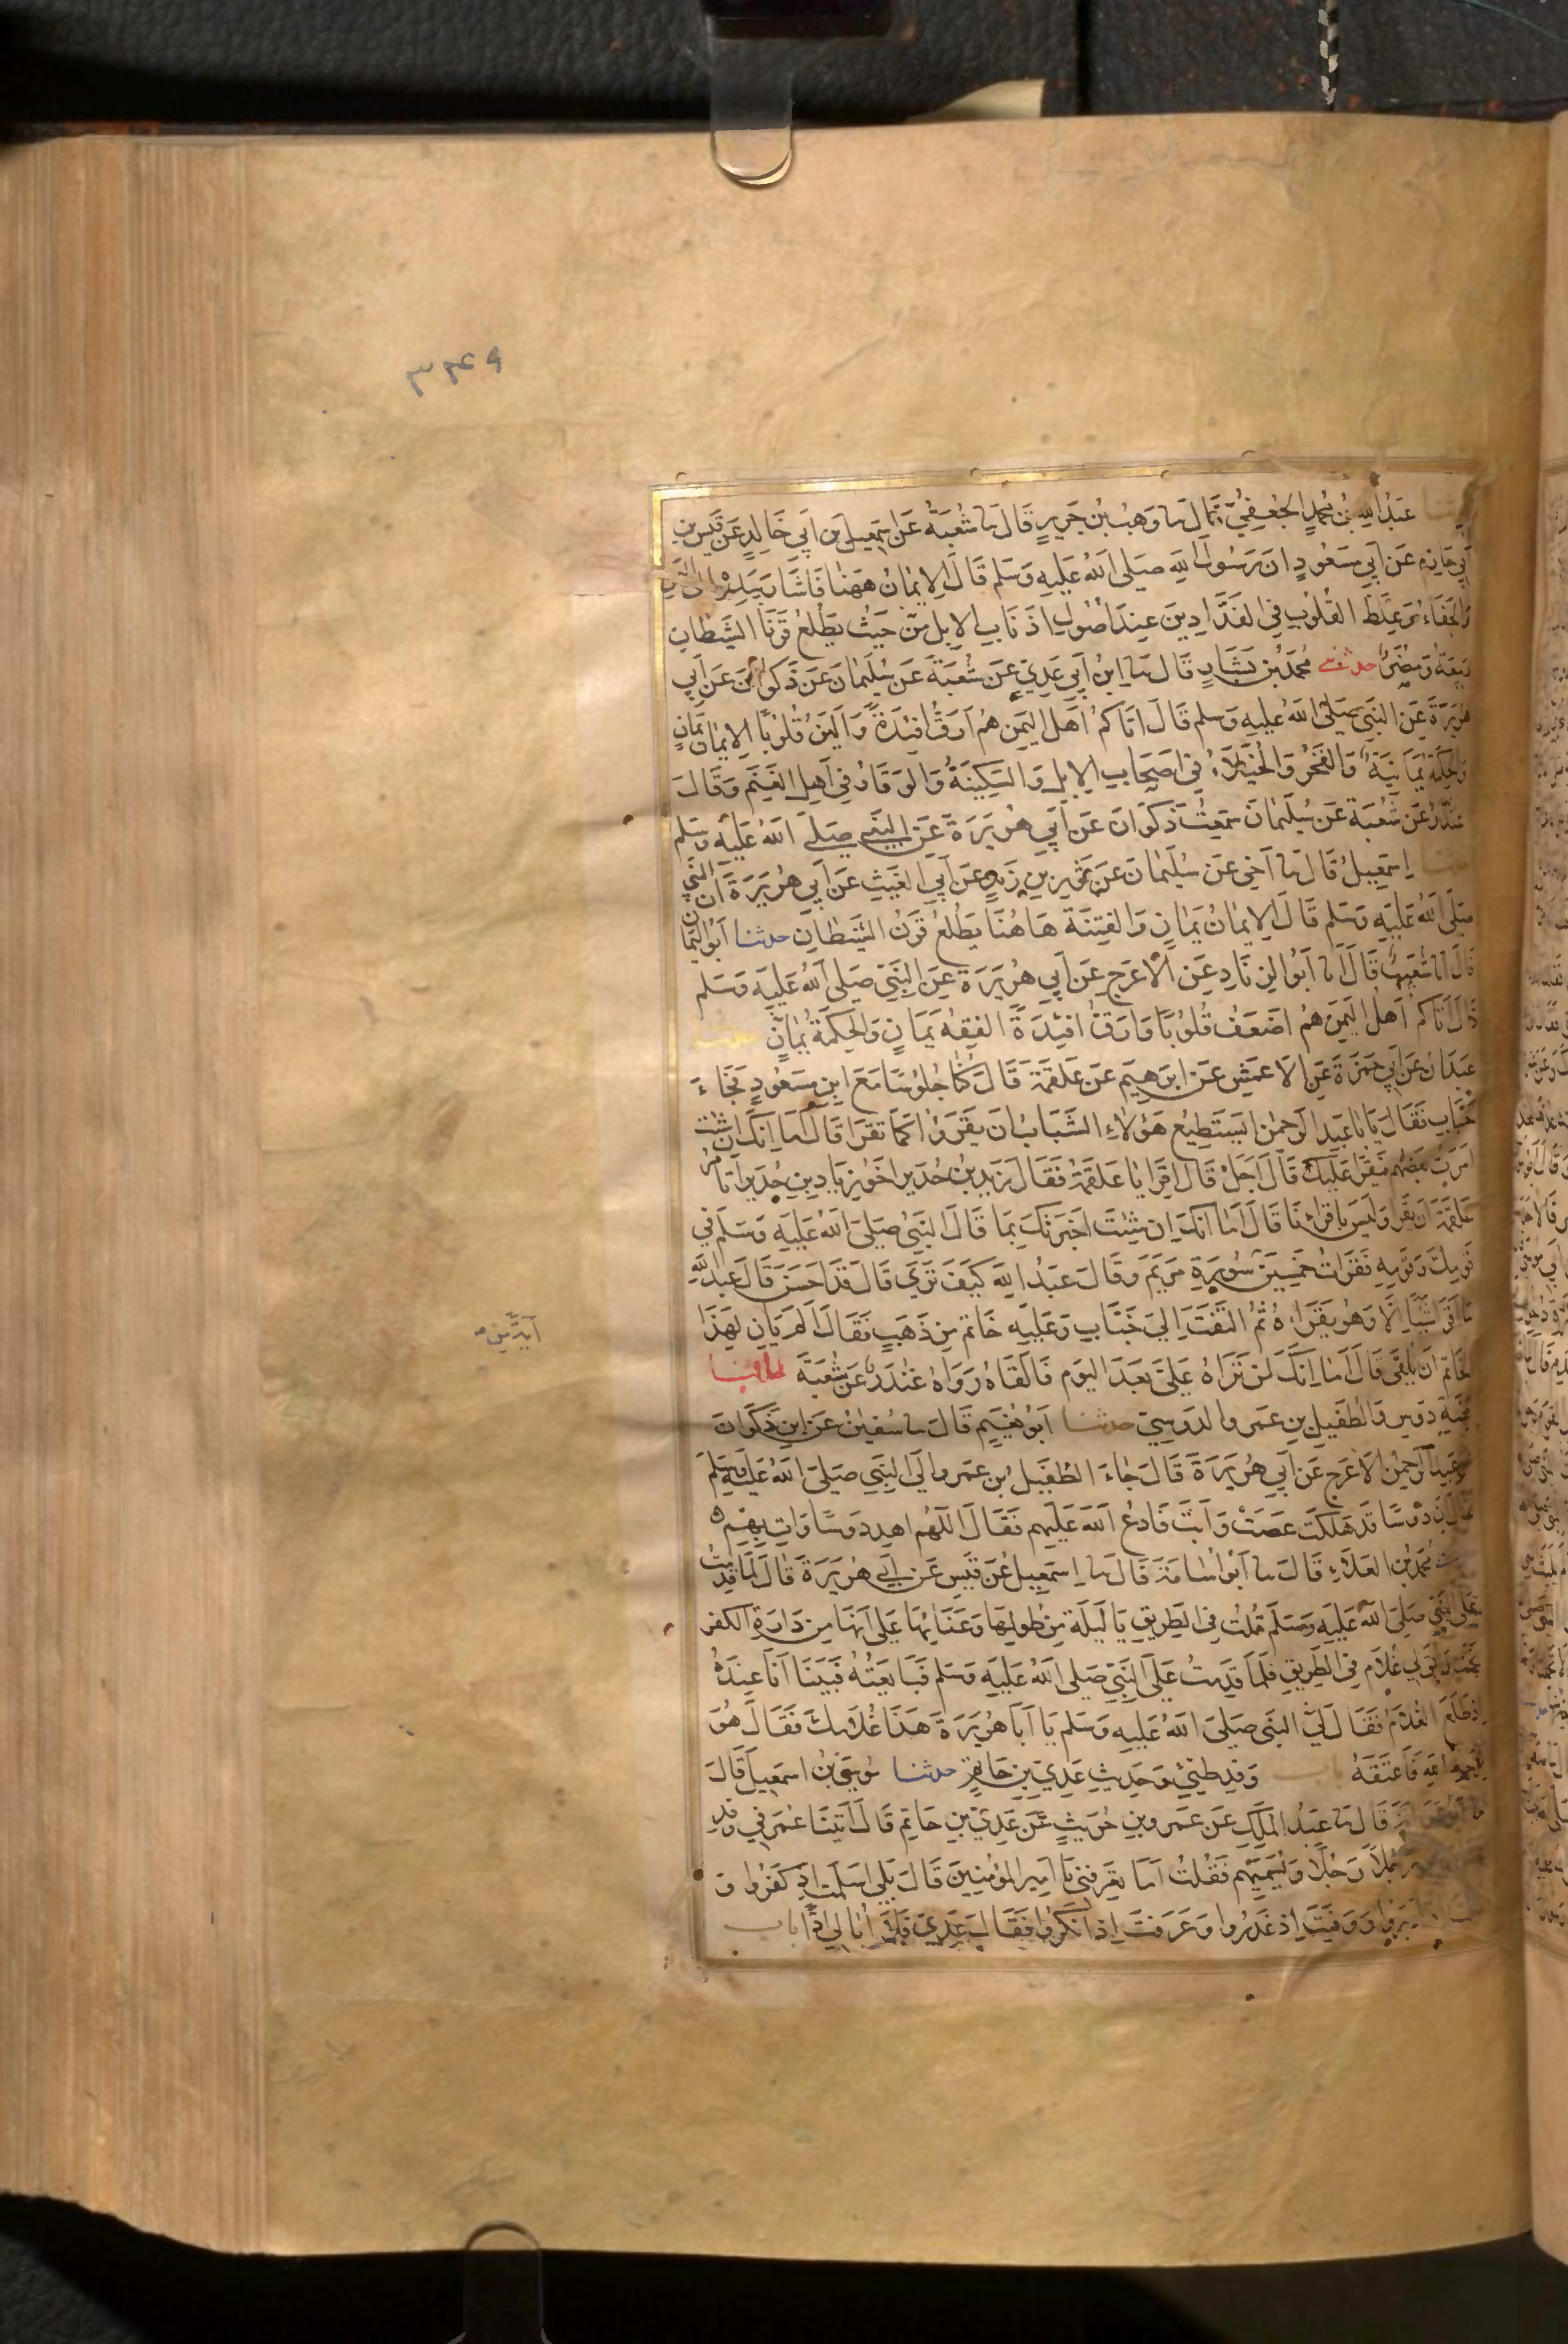 ٣٤٩
حدثنا عَبْدُ اللهِ بْنُ مُحَمَّدٍ الْجُعْفِيُّ قَالَ ثنا وَهْبُ بْنُ جَرِيرٍ قَالَ ثنا شُعْبَةُ عَنْ اِسْمٰعِيلَ بْنِ اَبِي خَالِدٍ عَنْ قَيْسِ بْنِ
اَبِي حَازِمٍ عَنْ اَبِي مَسْعُودٍ اَنَّ رَسُولَ اللهِ صَلَّى اللهُ عَلَيْهِ وَسَلَّمَ قَالَ الْاِيمَانُ هٰهُنَا فَاَشَارَ بِيَدِهِ اِلَى الْيَمَنِ
وَالْجَفَاءُ وَغِلَظُ الْقُلُوبِ فِي الْفَدَّادِينَ عِنْدَ اُصُولِ اَذْنَابِ الْاِبِلِ مِنْ حَيْثُ يَطْلُعُ قَرْنَا الشَّيْطَانِ
رَبِيعَةُ وَمُضَرُ حدثنى مُحَمَّدُ بْنُ بَشَّارٍ قَالَ ثنا ابْنُ اَبِي عَدِيٍّ عَنْ شُعْبَةَ عَنْ سُلَيْمَانَ عَنْ ذَكْوَانَ عَنْ اَبِي
هُرَيْرَةَ عَنِ النَّبِيِّ صَلَّى اللهُ عَلَيْهِ وَسَلَّمَ قَالَ اَتَاكُمْ اَهْلُ الْيَمَنِ هُمْ اَرَقُّ اَفْئِدَةً وَاَلْيَنُ قُلُوبًا الْاِيمَانُ يَمَانٍ
وَالْحِكْمَةُ يَمَانِيَةٌ وَالْفَخْرُ وَالْخُيَلَاءُ فِي اَصْحَابِ الْاِبِلِ وَالسَّكِينَةُ وَالْوَقَارُ فِي اَهْلِ الْغَنَمِ وَقَالَ
غُنْدَرٌ عَنْ شُعْبَةَ عَنْ سُلَيْمَانَ سَمِعْتُ ذَكْوَانَ عَنْ اَبِي هُرَيْرَةَ عَنِ النَّبِيِّ صَلَّى اللهُ عَلَيْهِ وَسَلَّمَ
حدثنا اِسْمٰعِيلُ قَالَ ثنا اَخِي عَنْ سُلَيْمَانَ عَنْ ثَوْرِ بْنِ زَيْدٍ عَنْ اَبِي الْغَيْثِ عَنْ اَبِي هُرَيْرَةَ اَنَّ النَّبِيَّ
صَلَّى اللهُ عَلَيْهِ وَسَلَّمَ قَالَ الْاِيمَانُ يَمَانٍ وَالْفِتْنَةُ هَاهُنَا يَطْلُعُ قَرْنُ الشَّيْطَانِ حدثنا اَبُو الْيَمَانِ
قَالَ انا شُعَيْبٌ قَالَ ثنا اَبُو الزِّنَادِ عَنِ الْاَعْرَجِ عَنْ اَبِي هُرَيْرَةَ عَنِ النَّبِيِّ صَلَّى اللهُ عَلَيْهِ وَسَلَّمَ
قَالَ اَتَاكُمْ اَهْلُ الْيَمَنِ هُمْ اَضْعَفُ قُلُوبًا وَاَرَقُّ اَفْئِدَةً الْفِقْهُ يَمَانٍ وَالْحِكْمَةُ يَمَانٍ حدثنا
عَبْدَانُ عَنْ اَبِي حَمْزَةَ عَنِ الْاَعْمَشِ عَنْ اِبْرٰهِيمَ عَنْ عَلْقَمَةَ قَالَ كُنَّا جُلُوسًا مَعَ ابْنِ مَسْعُودٍ فَجَاءَ
خَبَّابٌ فَقَالَ يَا اَبَا عَبْدِ الرَّحْمٰنِ اَيَسْتَطِيعُ هٰؤُلَاءِ الشَّبَابُ اَنْ يَقْرَؤُا كَمَا تَقْرَأُ قَالَ اَمَا اِنَّكَ اِنْ شِئْتَ
اَمَرْتُ بَعْضَهُمْ فَيَقْرَأُ عَلَيْكَ قَالَ اَجَلْ قَالَ اِقْرَأْ يَا عَلْقَمَةُ فَقَالَ زَيْدُ بْنُ حُدَيْرٍ اَخُو زِيَادِ بْنِ حُدَيْرٍ اَتَأْمُرُ
عَلْقَمَةَ اَنْ يَقْرَأَ وَلَيْسَ بِاَقْرَئِنَا قَالَ اَمَا اِنَّكَ اِنْ شِئْتَ اَخْبَرْتُكَ بِمَا قَالَ النَّبِيُّ صَلَّى اللهُ عَلَيْهِ وَسَلَّمَ فِي
قَوْمِكَ وَقَوْمِهِ فَقَرَأْتُ خَمْسِينَ سُورَةِ مَرْيَمَ وَقَالَ عَبْدُ اللهِ كَيْفَ تَرَى قَالَ قَدْ اَحْسَنَ قَالَ عَبْدُ اللهِ
اٰيَةً مِنْ
مَا اَقْرَأُ شَيْئًا اِلَّا وَهُوَ يَقْرَأُهُ ثُمَّ الْتَفَتَ اِلَى خَبَّابٍ وَعَلَيْهِ خَاتَمٌ مِنْ ذَهَبٍ فَقَالَ اَلَمْ يَأْنِ لِهٰذَا
الْخَاتَمِ اَنْ يُلْقَى قَالَ اَمَا اِنَّكَ لَنْ تَرَاهُ عَلَيَّ بَعْدَ الْيَوْمِ فَاَلْقَاهُ رَوَاهُ غُنْدَرٌ عَنْ شُعْبَةَ
قِصَّةِ دَوْسٍ وَالطُّفَيْلِ بْنِ عَمْرٍو الدَّوْسِيِّ حدثنا اَبُو نُعَيْمٍ قَالَ ثنا سُفْيٰنُ عَنِ ابْنِ ذَكْوَانَ
عَنْ عَبْدِ الرَّحْمٰنِ الْاَعْرَجِ عَنْ اَبِي هُرَيْرَةَ قَالَ جَاءَ الطُّفَيْلُ بْنُ عَمْرٍو اِلَى النَّبِيِّ صَلَّى اللهُ عَلَيْهِ وَسَلَّمَ
فَقَالَ اِنَّ دَوْسًا قَدْ هَلَكَتْ عَصَتْ وَاَبَتْ فَادْعُ اللهَ عَلَيْهِمْ فَقَالَ اللّٰهُمَّ اهْدِ دَوْسًا وَاْتِ بِهِمْ
مُحَمَّدُ بْنُ الْعَلَاءِ قَالَ ثنا اَبُو اُسَامَةَ قَالَ ثنا اِسْمٰعِيلُ عَنْ قَيْسٍ عَنْ اَبِي هُرَيْرَةَ قَالَ لَمَّا قَدِمْتُ
عَلَى النَّبِيِّ صَلَّى اللهُ عَلَيْهِ وَسَلَّمَ قُلْتُ فِي الطَّرِيقِ يَا لَيْلَةً مِنْ طُولِهَا وَعَنَائِهَا عَلَى اَنَّهَا مِنْ دَارَةِ الْكُفْرِ
نَجَّتْ وَاَبَقَ لِي غُلَامٌ فِي الطَّرِيقِ فَلَمَّا قَدِمْتُ عَلَى النَّبِيِّ صَلَّى اللهُ عَلَيْهِ وَسَلَّمَ فَبَايَعْتُهُ فَبَيْنَا اَنَا عِنْدَهُ
اِذْ طَلَعَ الْغُلَامُ فَقَالَ لِيَ النَّبِيُّ صَلَّى اللهُ عَلَيْهِ وَسَلَّمَ يَا اَبَا هُرَيْرَةَ هٰذَا غُلَامُكَ فَقَالَ هُوَ
لِوَجْهِ اللهِ فَاَعْتَقَهُ باب وَفْدِ طَيِّئٍ وَحَدِيثِ عَدِيِّ بْنِ حَاتِمٍ حدثنا مُوسَى بْنُ اِسْمٰعِيلَ قَالَ
ثنا اَبُو عَوَانَةَ قَالَ ثنا عَبْدُ الْمَلِكِ عَنْ عَمْرِو بْنِ حُرَيْثٍ عَنْ عَدِيِّ بْنِ حَاتِمٍ قَالَ اَتَيْنَا عُمَرَ فِي وَفْدٍ
رَجُلًا رَجُلًا وَيُسَمِّيهِمْ فَقُلْتُ اَمَا تَعْرِفُنِي يَا اَمِيرَ الْمُؤْمِنِينَ قَالَ بَلَى اَسْلَمْتَ اِذْ كَفَرُوا وَ
اَدْبَرُوا وَوَفَيْتَ اِذْ غَدَرُوا وَعَرَفْتَ اِذْ اَنْكَرُوا فَقَالَ عَدِيٌّ فَلَا اُبَالِي اِذًا باب